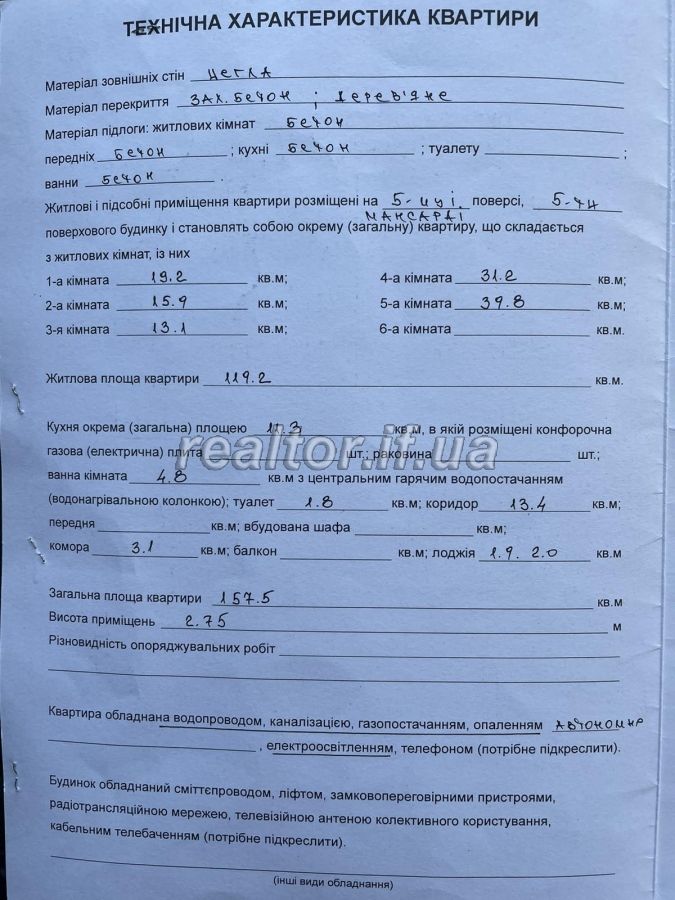 ТЕХНІЧНА ХАРАКТЕРИСТИКА КВАРТИРИ
Матеріал зовнішніх стін цегла
Матеріал перекриття зал.бетон ; дерев'яне
Матеріал підлоги: житлових кімнат бетон
передніх бетон ; кухні бетон ; туалету ;
ванни бетон .
Житлові і підсобні приміщення квартири розміщені на 5-иці. поверсі, 5-ти
мансарді
поверхового будинку і становлять собою окрему (загальну) квартиру, що складається
з житлових кімнат, із них
1-а кімната 19.2 кв.м; 4-а кімната 31.2 кв.м;
2-а кімната 15.9 кв.м; 5-а кімната 39.8 кв.м;
3-я кімната 13.1 кв.м; 6-а кімната кв.м.
Житлова площа квартири 119.2 кв.м.
Кухня окрема (загальна) площею 11.3 кв.м, в якій розміщені конфорочна
газова (електрична) плита шт.; раковина шт.;
realtor.if.ua
ванна кімната 4.8 кв.м з центральним гарячим водопостачанням
(водонагрівальною колонкою); туалет 1.8 кв.м; коридор 13.4 кв.м;
передня кв.м; вбудована шафа кв.м;
комора 3.1 кв.м; балкон кв.м; лоджія 1.9. 2.0 кв.м
Загальна площа квартири 157.5 кв.м
Висота приміщень 2.75 м
Різновидність опоряджувальних робіт
Квартира обладнана водопроводом, каналізацією, газопостачанням, опаленням автономне
, електроосвітленням, телефоном (потрібне підкреслити).
Будинок обладнаний сміттєпроводом, ліфтом, замковопереговірними пристроями,
радіотрансляційною мережею, телевізійною антеною колективного користування,
кабельним телебаченням (потрібне підкреслити).
(інші види обладнання)